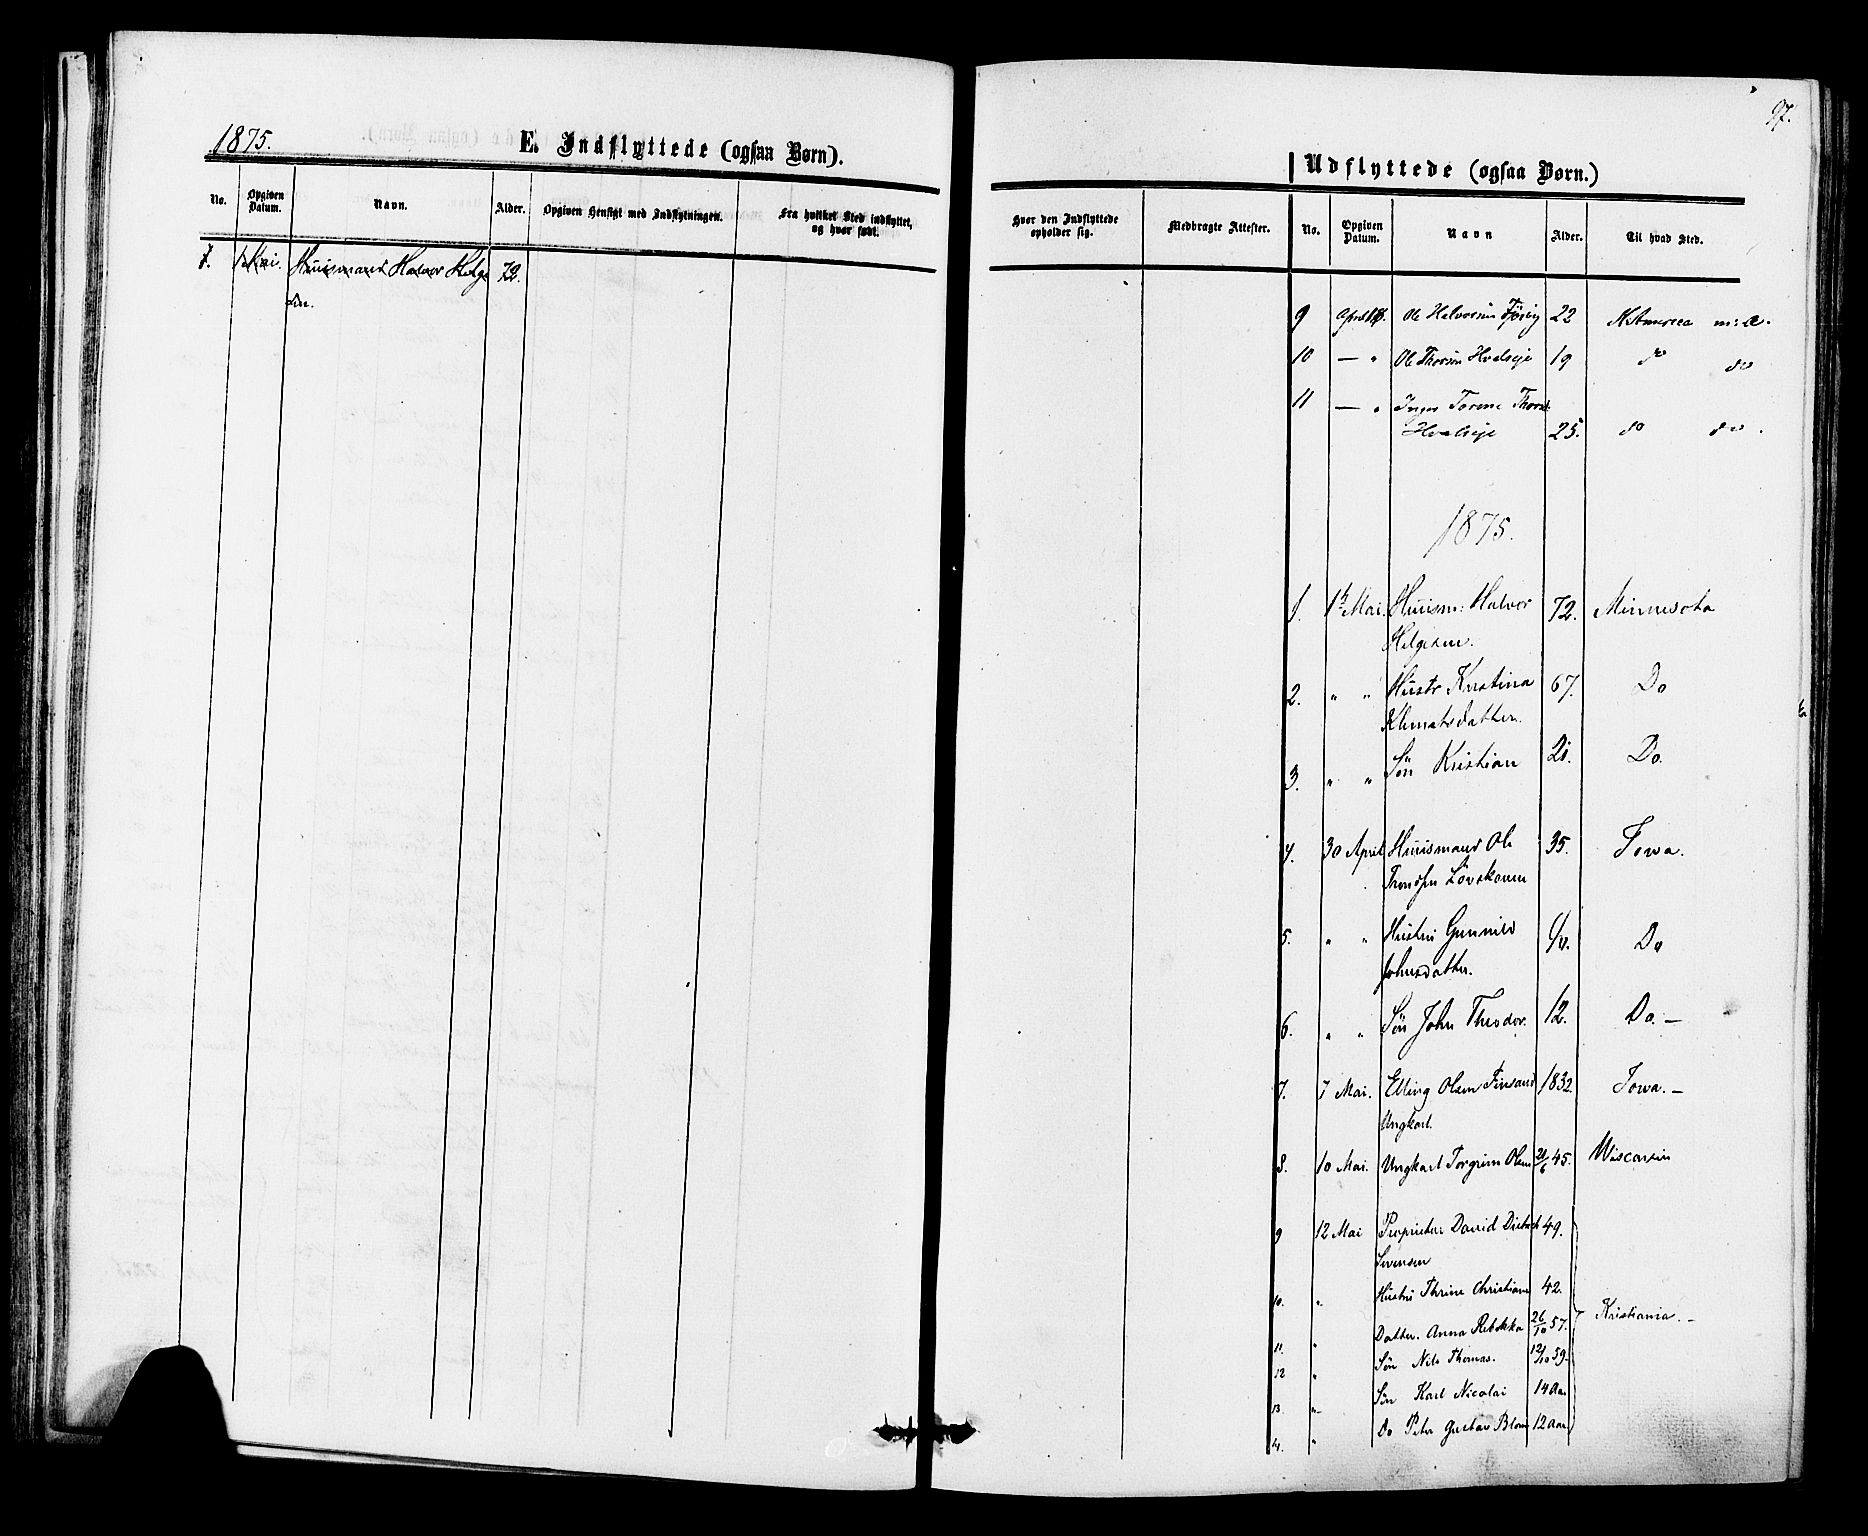 1875.
E. Indflyttede (ogsaa Børn).
No. Opgiven Datum. Navn. Alder. Opgiven Hensigt med Indflytningen. Fra hvilket Sted indflyttet, og hvor født.
1 Mai. Huusmand Halvor Helge 72.
sen.
97.
Udflyttede (ogsaa Børn.)
Hvor den Indflyttede opholder sig. Medbragte Attester. No. Opgiven Datum. Navn Alder. Til hvad Sted.
9 April Ole Halvorsen 22 N America
10 — " Ole Thorsen Hvalseje 19 do do
11 — " Inger Torine
Hvalseje 25. do do.
1875.
1. 1 Mai. Huusm: Halvor 72. Minnesota
Helgesen.
2. " " Hustr Kristina 67. Do
Klemetsdatter.
3. " " Søn Kristian 21. Do.
4. 30 April Huusmand Ole 35. Iowa.
Trondsen Løvskaven
5. " " Hustru Gunnild Do
Johnsdatter.
6. " " Søn John Theodor. 12. Do. —
7. 7 Mai. Elling Olsen Finsand 1832. Iowa. —
Ungkarl.
8. 10 Mai. Ungkarl Torgrim Olsen 45. Wisconsin
9 12 Mai Proprietær David 49.
Sørensen
10. " Hustru Thrine Christiane 42.
11. " Datter. Anna Rebekka 26/10 57. Kristiania. —
12 " Søn Nils Thomas. 12/10 59.
13. " Søn Karl Nicolai 14 Aar
14. " Do Peter Gustav Blom 12 Aar